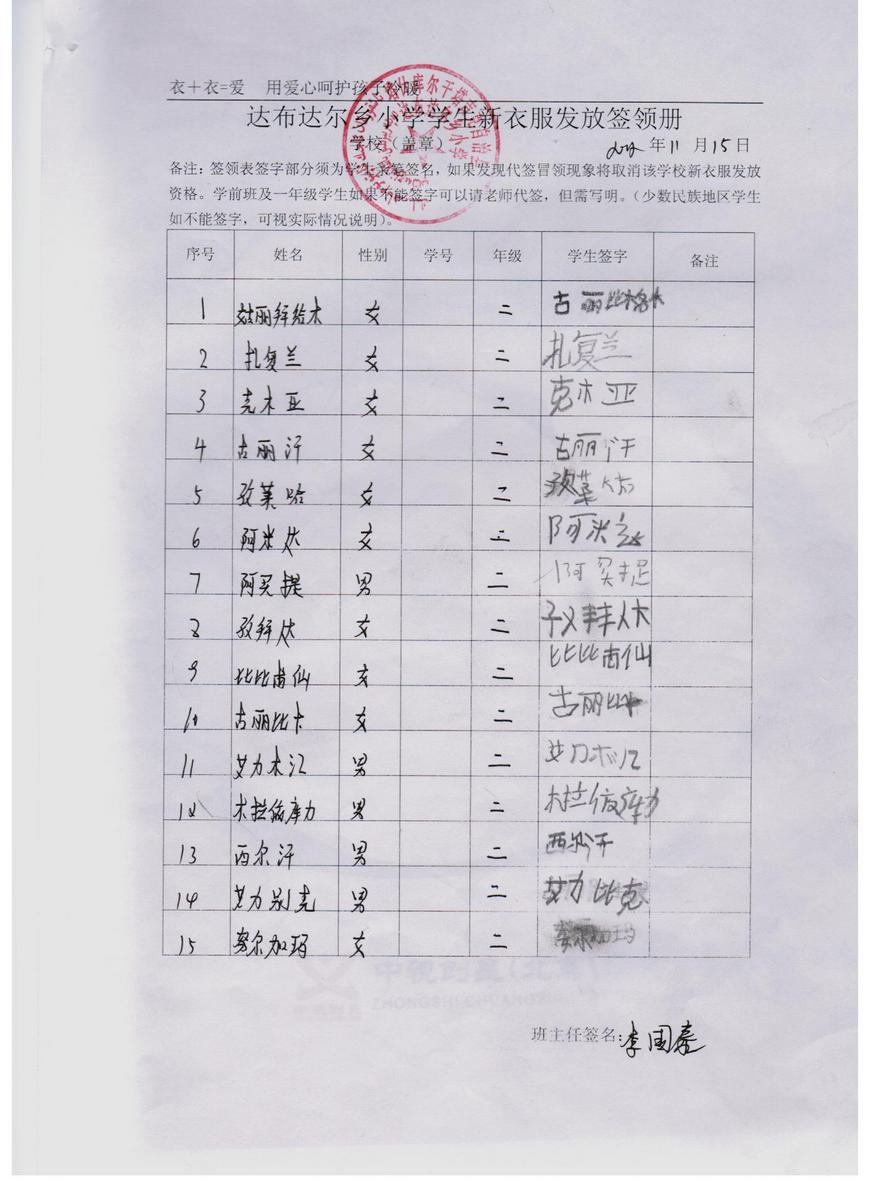 衣＋衣=爱 用爱心呵护孩子冷暖
达布达尔乡小学学生新衣服发放签领册
学校（盖章） 年 11 月 15 日
备注：签领表签字部分须为学生亲笔签名，如果发现代签冒领现象将取消该学校新衣服发放
资格。学前班及一年级学生如果不能签字可以请老师代签，但需写明。（少数民族地区学生
如不能签字，可视实际情况说明）。
序号 姓名 性别 学号 年级 学生签字 备注
1 女 二 古丽比
2 扎复兰 女 二 扎复兰
3 克木亚 女 二 克木亚
4 古丽汗 女 二 古丽汗
5 女 二
6 阿米达 女 二 阿米达
7 阿买提 男 二 阿买提
8 孜拜达 女 二
9 比比甫仙 女 二 比比甫仙
10 古丽比卡 女 二 古丽比卡
11 艾力木江 男 二 艾力木江
12 木拉依库力 男 二 木拉依库力
13 西尔汗 男 二 西尔汗
14 艾力别克 男 二 艾力比克
15 努尔加玛 女 二 努尔加玛
中视创意(北京)
班主任签名：李国泰